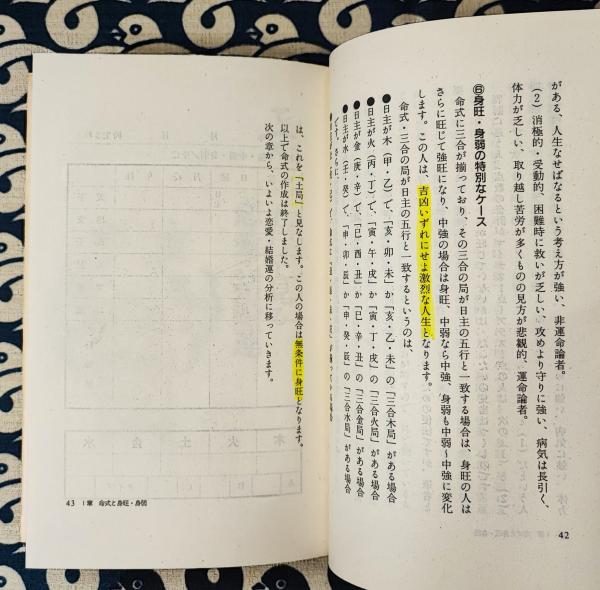 がある、人生なせばなるという考え方が強い、非運命論者。
(2) 消極的・受動的、困難時に救いが乏しい、攻めより守りに強い、病気は長引く、
体力が乏しい、取り越し苦労が多くものの見方が悲観的、運命論者。
⑥身旺・身弱の特別なケース
命式に三合が揃っており、その三合の局が日主の五行と一致する場合は、身旺の人は
さらに旺じて強旺になり、中強の場合は身旺、中弱なら中強、身弱も中弱〜中強に変化
します。この人は、吉凶いずれにせよ激烈な人生となります。
命式・三合の局が日主の五行と一致するというのは、
●日主が木（甲・乙）で、「亥・卯・未」か「亥・乙・未」の「三合木局」がある場合
●日主が火（丙・丁）で、「寅・午・戌」か「寅・丁・戌」の「三合火局」がある場合
●日主が金（庚・辛）で、「巳・酉・丑」か「巳・辛・丑」の「三合金局」がある場合
●日主が水（壬・癸）で、「申・卯・辰」か「申・癸・辰」の「三合水局」がある場合
42
は、これを「土局」と見なします。この人の場合は無条件に身旺となります。
以上で命式の作成は終了しました。
次の章から、いよいよ恋愛・結婚運の分析に移っていきます。
43 1章 命式と身旺・身弱